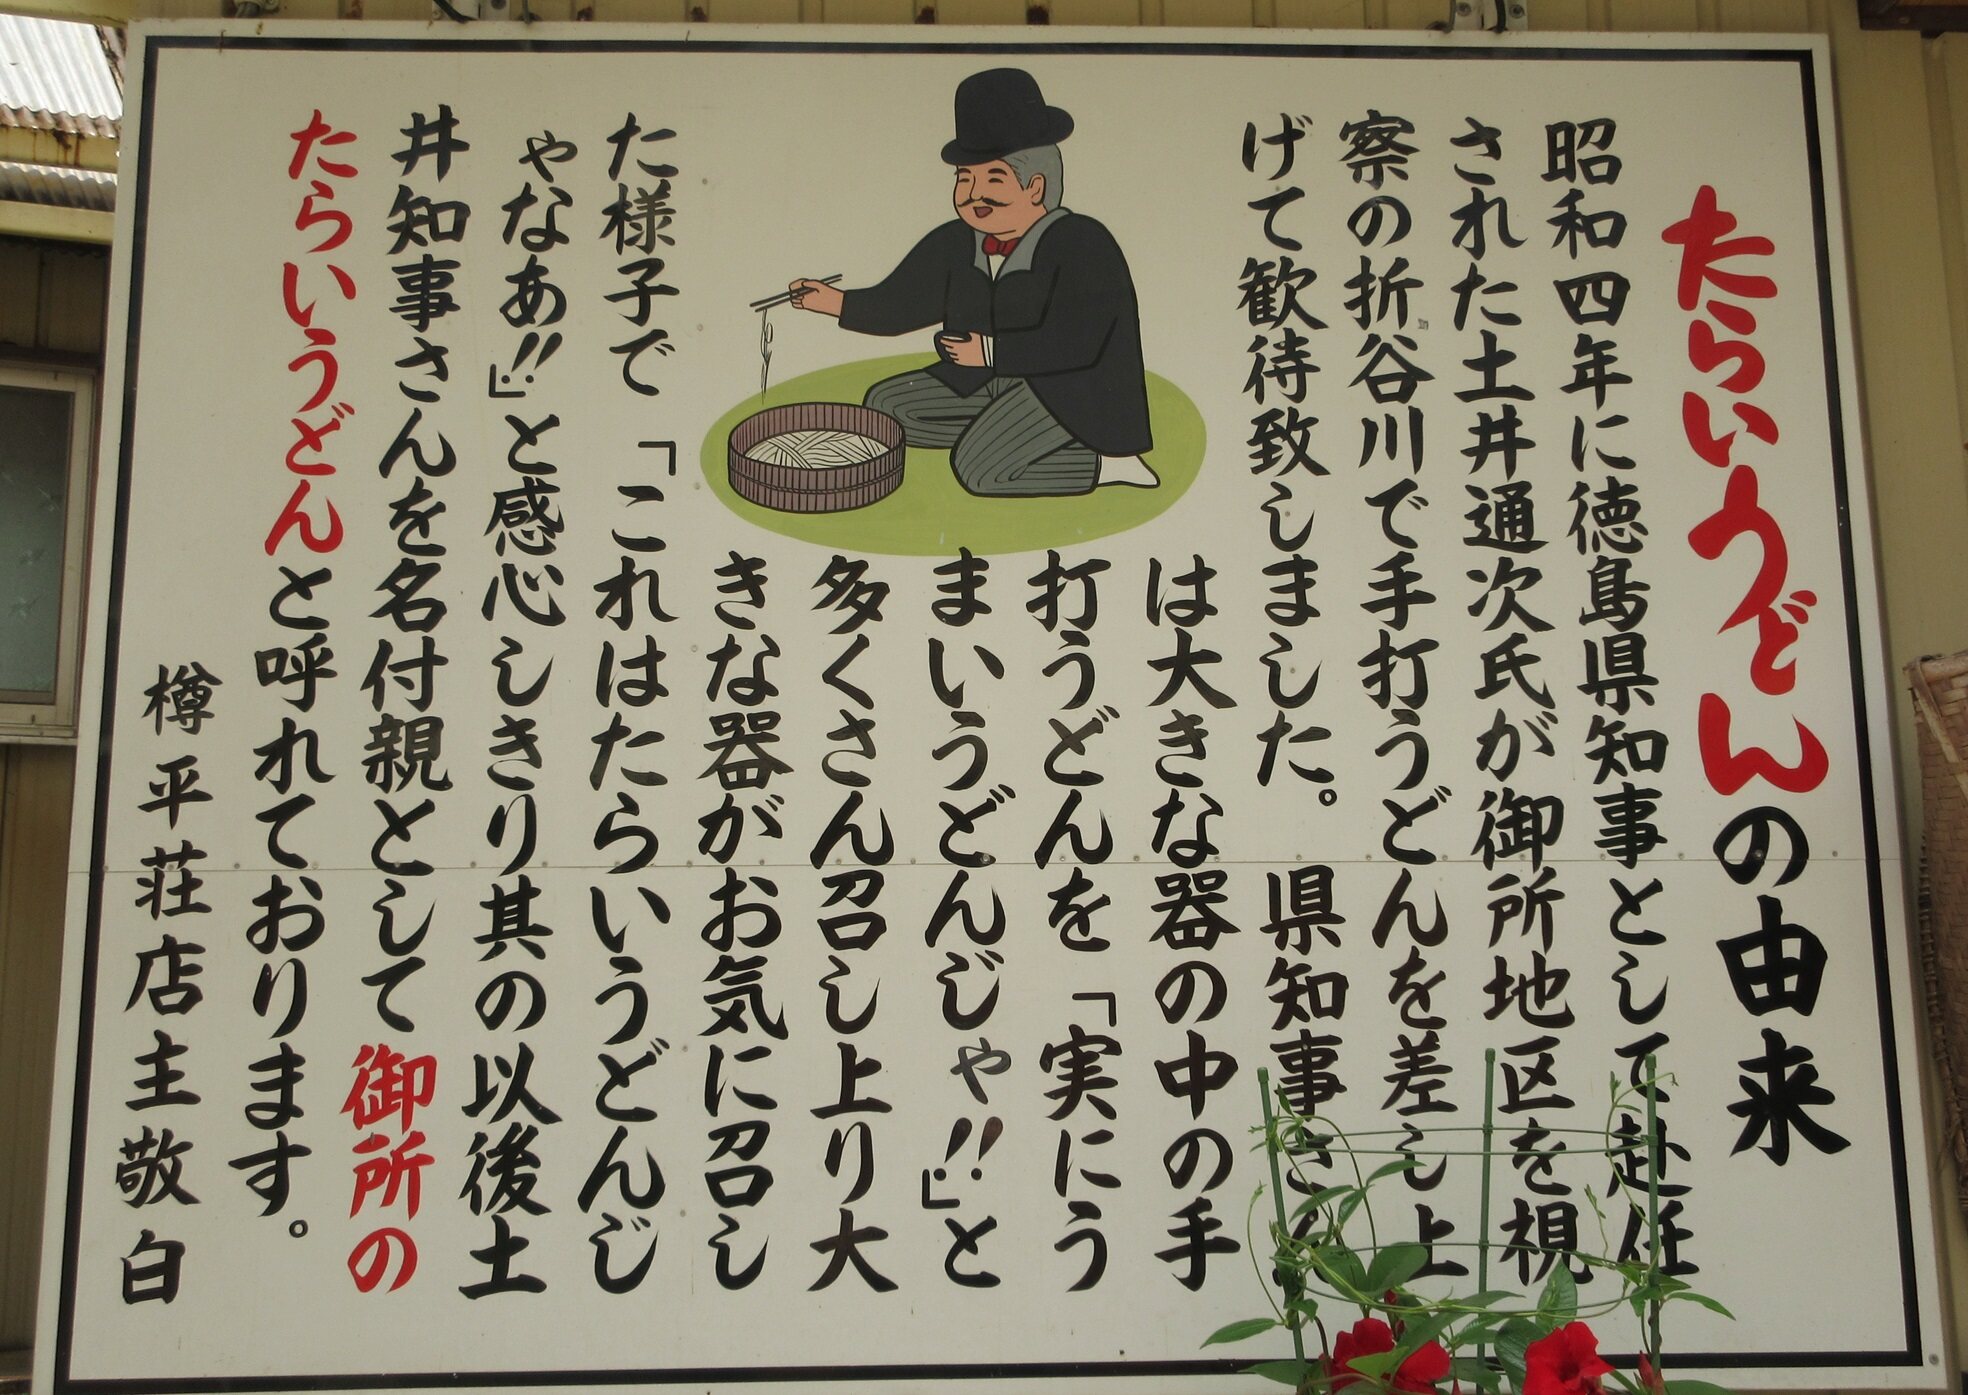 たらいうどんの由来
昭和四年に徳島県知事として赴任
された土井通次氏が御所地区を視
察の折谷川で手打うどんを差し上
げて歓待致しました。県知事さん
は大きな器の中の手
打うどんを「実にう
まいうどんじゃ!!」と
多くさん召し上り大
きな器がお気に召し
た様子で「これはたらいうどんじ
ゃなあ!!」と感心しきり其の以後土
井知事さんを名付親として御所の
たらいうどんと呼れております。
樽平荘店主敬白